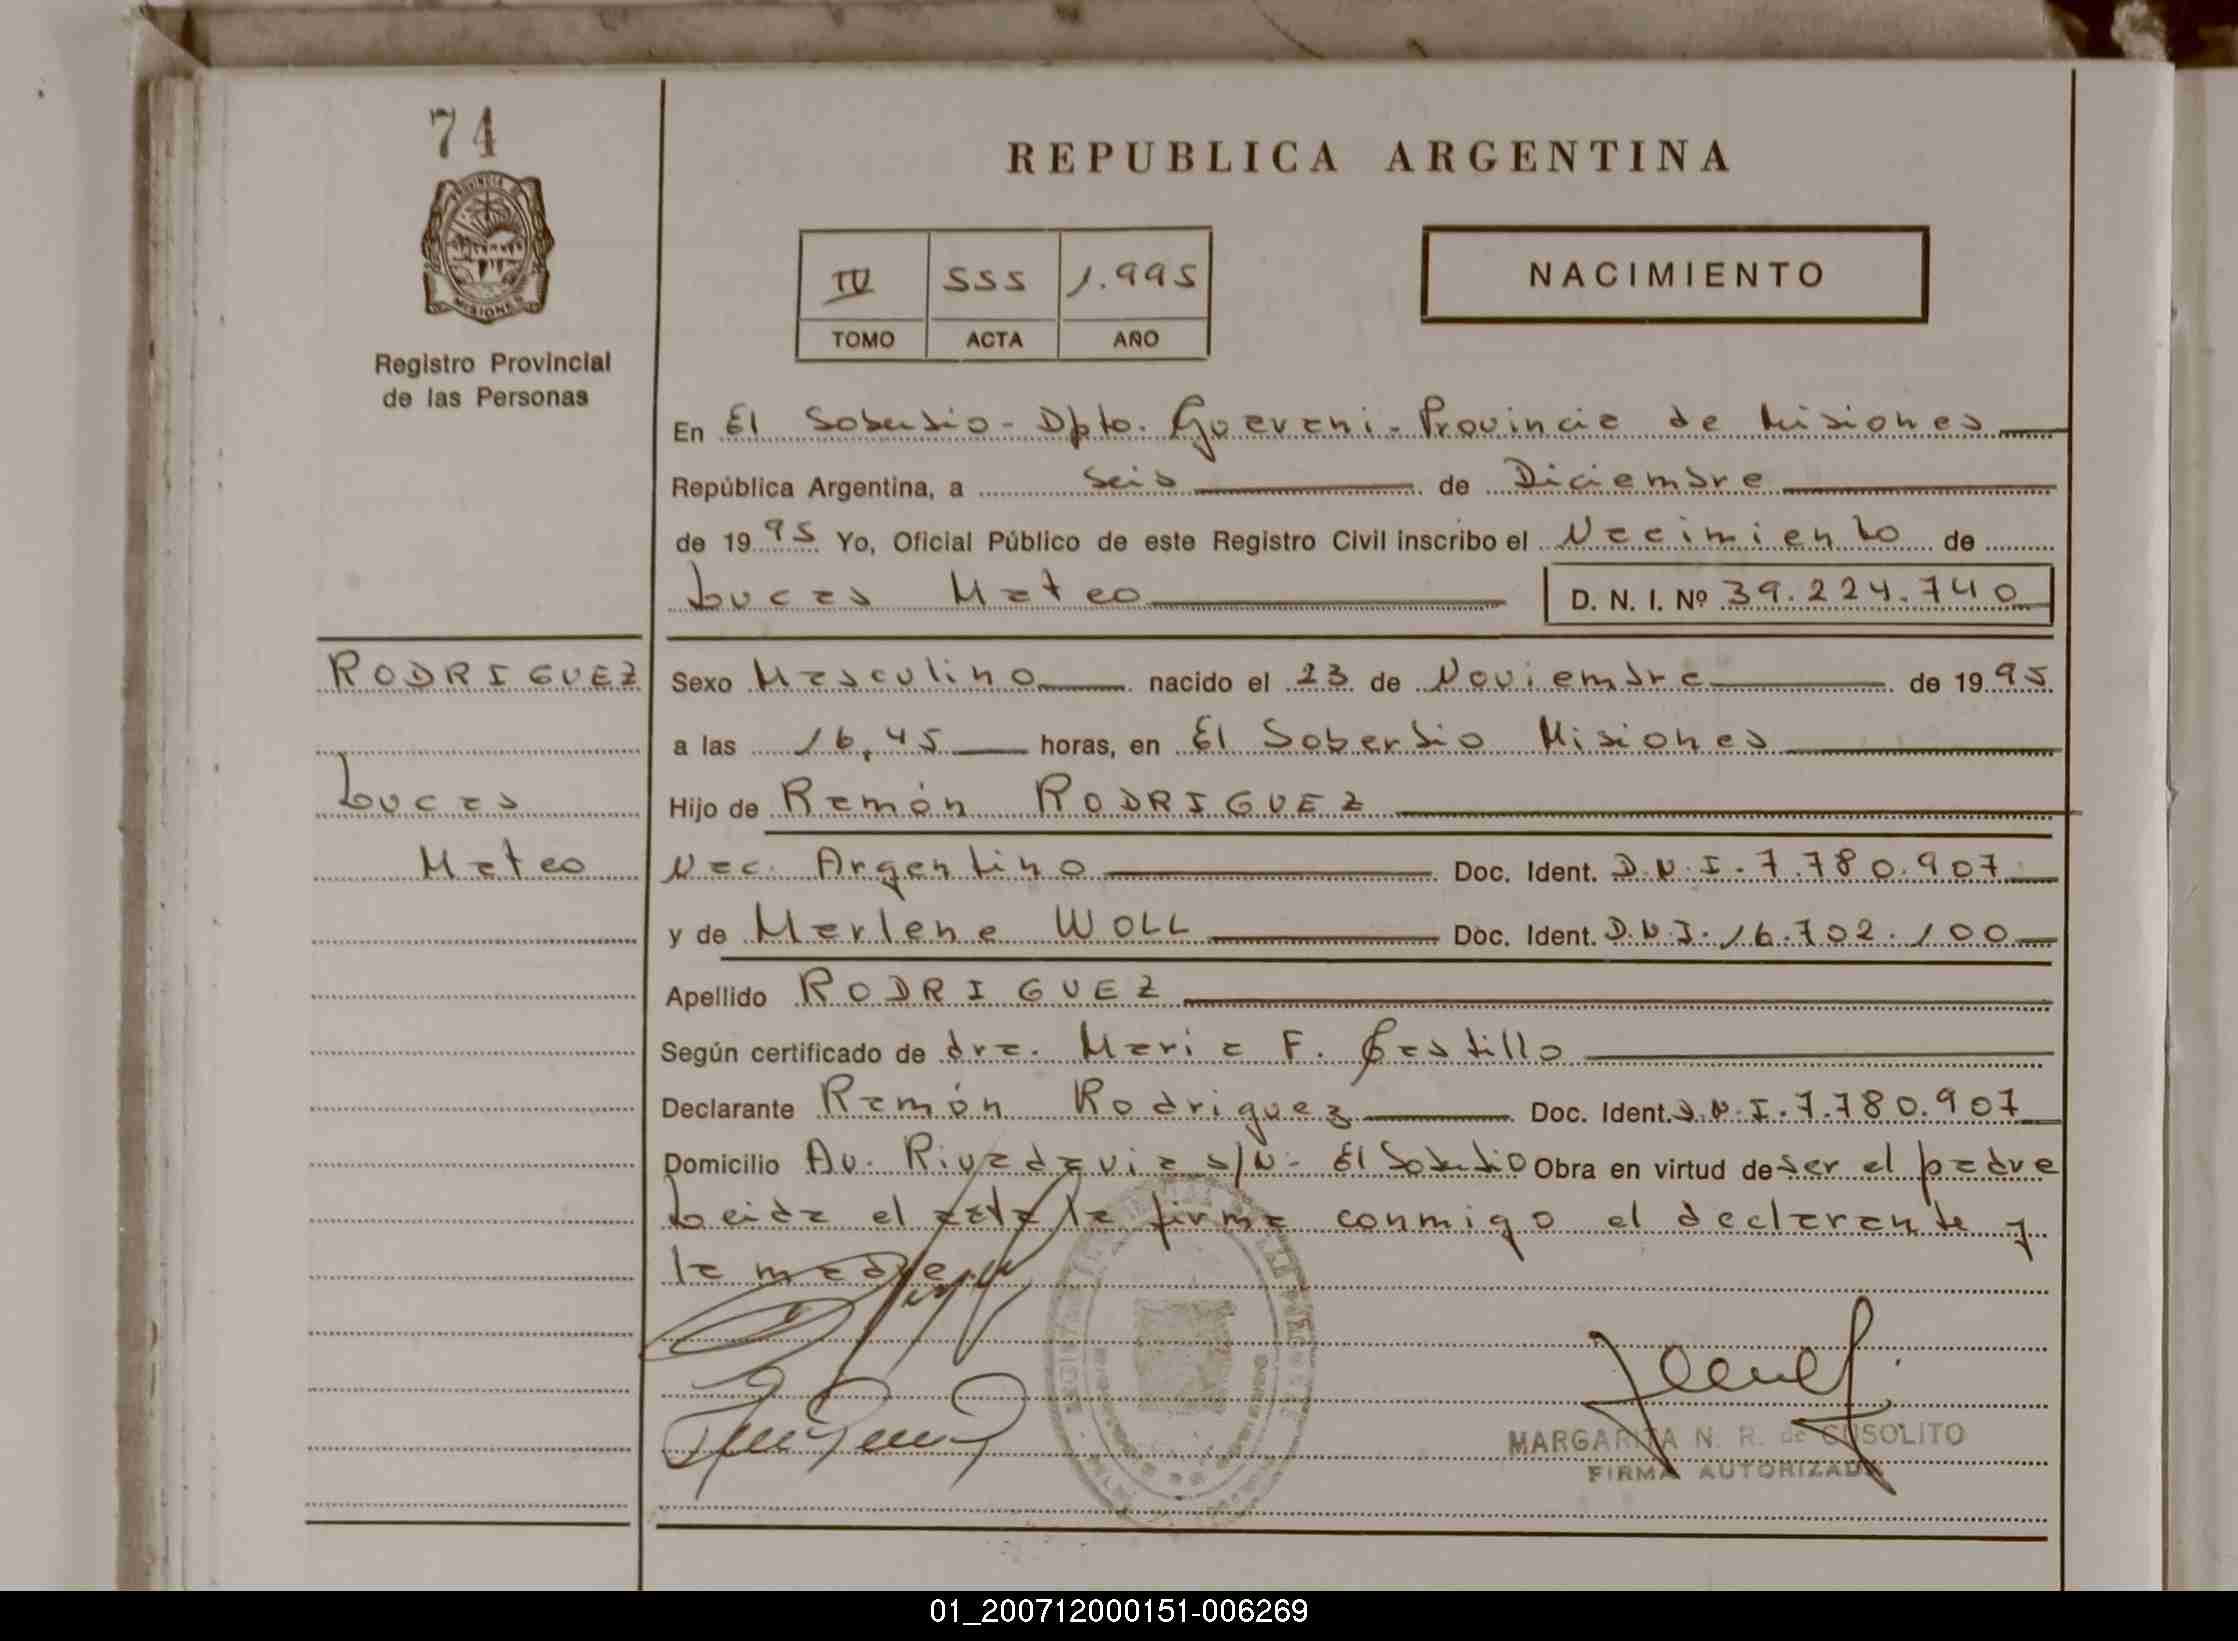 74
REPUBLICA ARGENTINA
PROVINCIA DE
MISIONES
IV 555 1.995
NACIMIENTO
TOMO ACTA AÑO
Registro Provincial
de las Personas
En El Soberbio - Dpto. Guarani - Provincia de Misiones
República Argentina, a seis de Diciembre
de 1995 Yo, Oficial Público de este Registro Civil inscribo el Nacimiento de
Lucas Mateo D. N. I. Nº 39.224.740
RODRIGUEZ
Lucas
Mateo
Sexo Masculino nacido el 23 de Noviembre de 1995
a las 16,45 horas, en El Soberbio Misiones
Hijo de Ramón RODRIGUEZ
Nac. Argentino Doc. Ident. D.N.I. 7.780.907
y de Marlene WOLL Doc. Ident. D.N.I. 16.702.100
Apellido RODRIGUEZ
Según certificado de dra. Maria F. Castillo
Declarante Ramón Rodriguez Doc. Ident. D.N.I. 7.780.907
Domicilio Av. Rivadavia s/N - El Soberbio Obra en virtud de ser el padre
Leida el acta la firma conmigo el declarante y
la madre.
MARGARITA N. R. de CUSOLITO
FIRMA AUTORIZADA
01_200712000151-006269